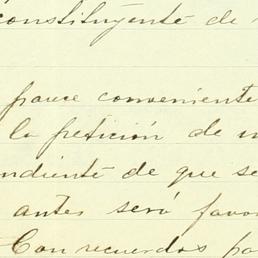 constituyente de
parece conveniente
la petición de un
ndiente de que se
antes será favor
Con recuerdos pa